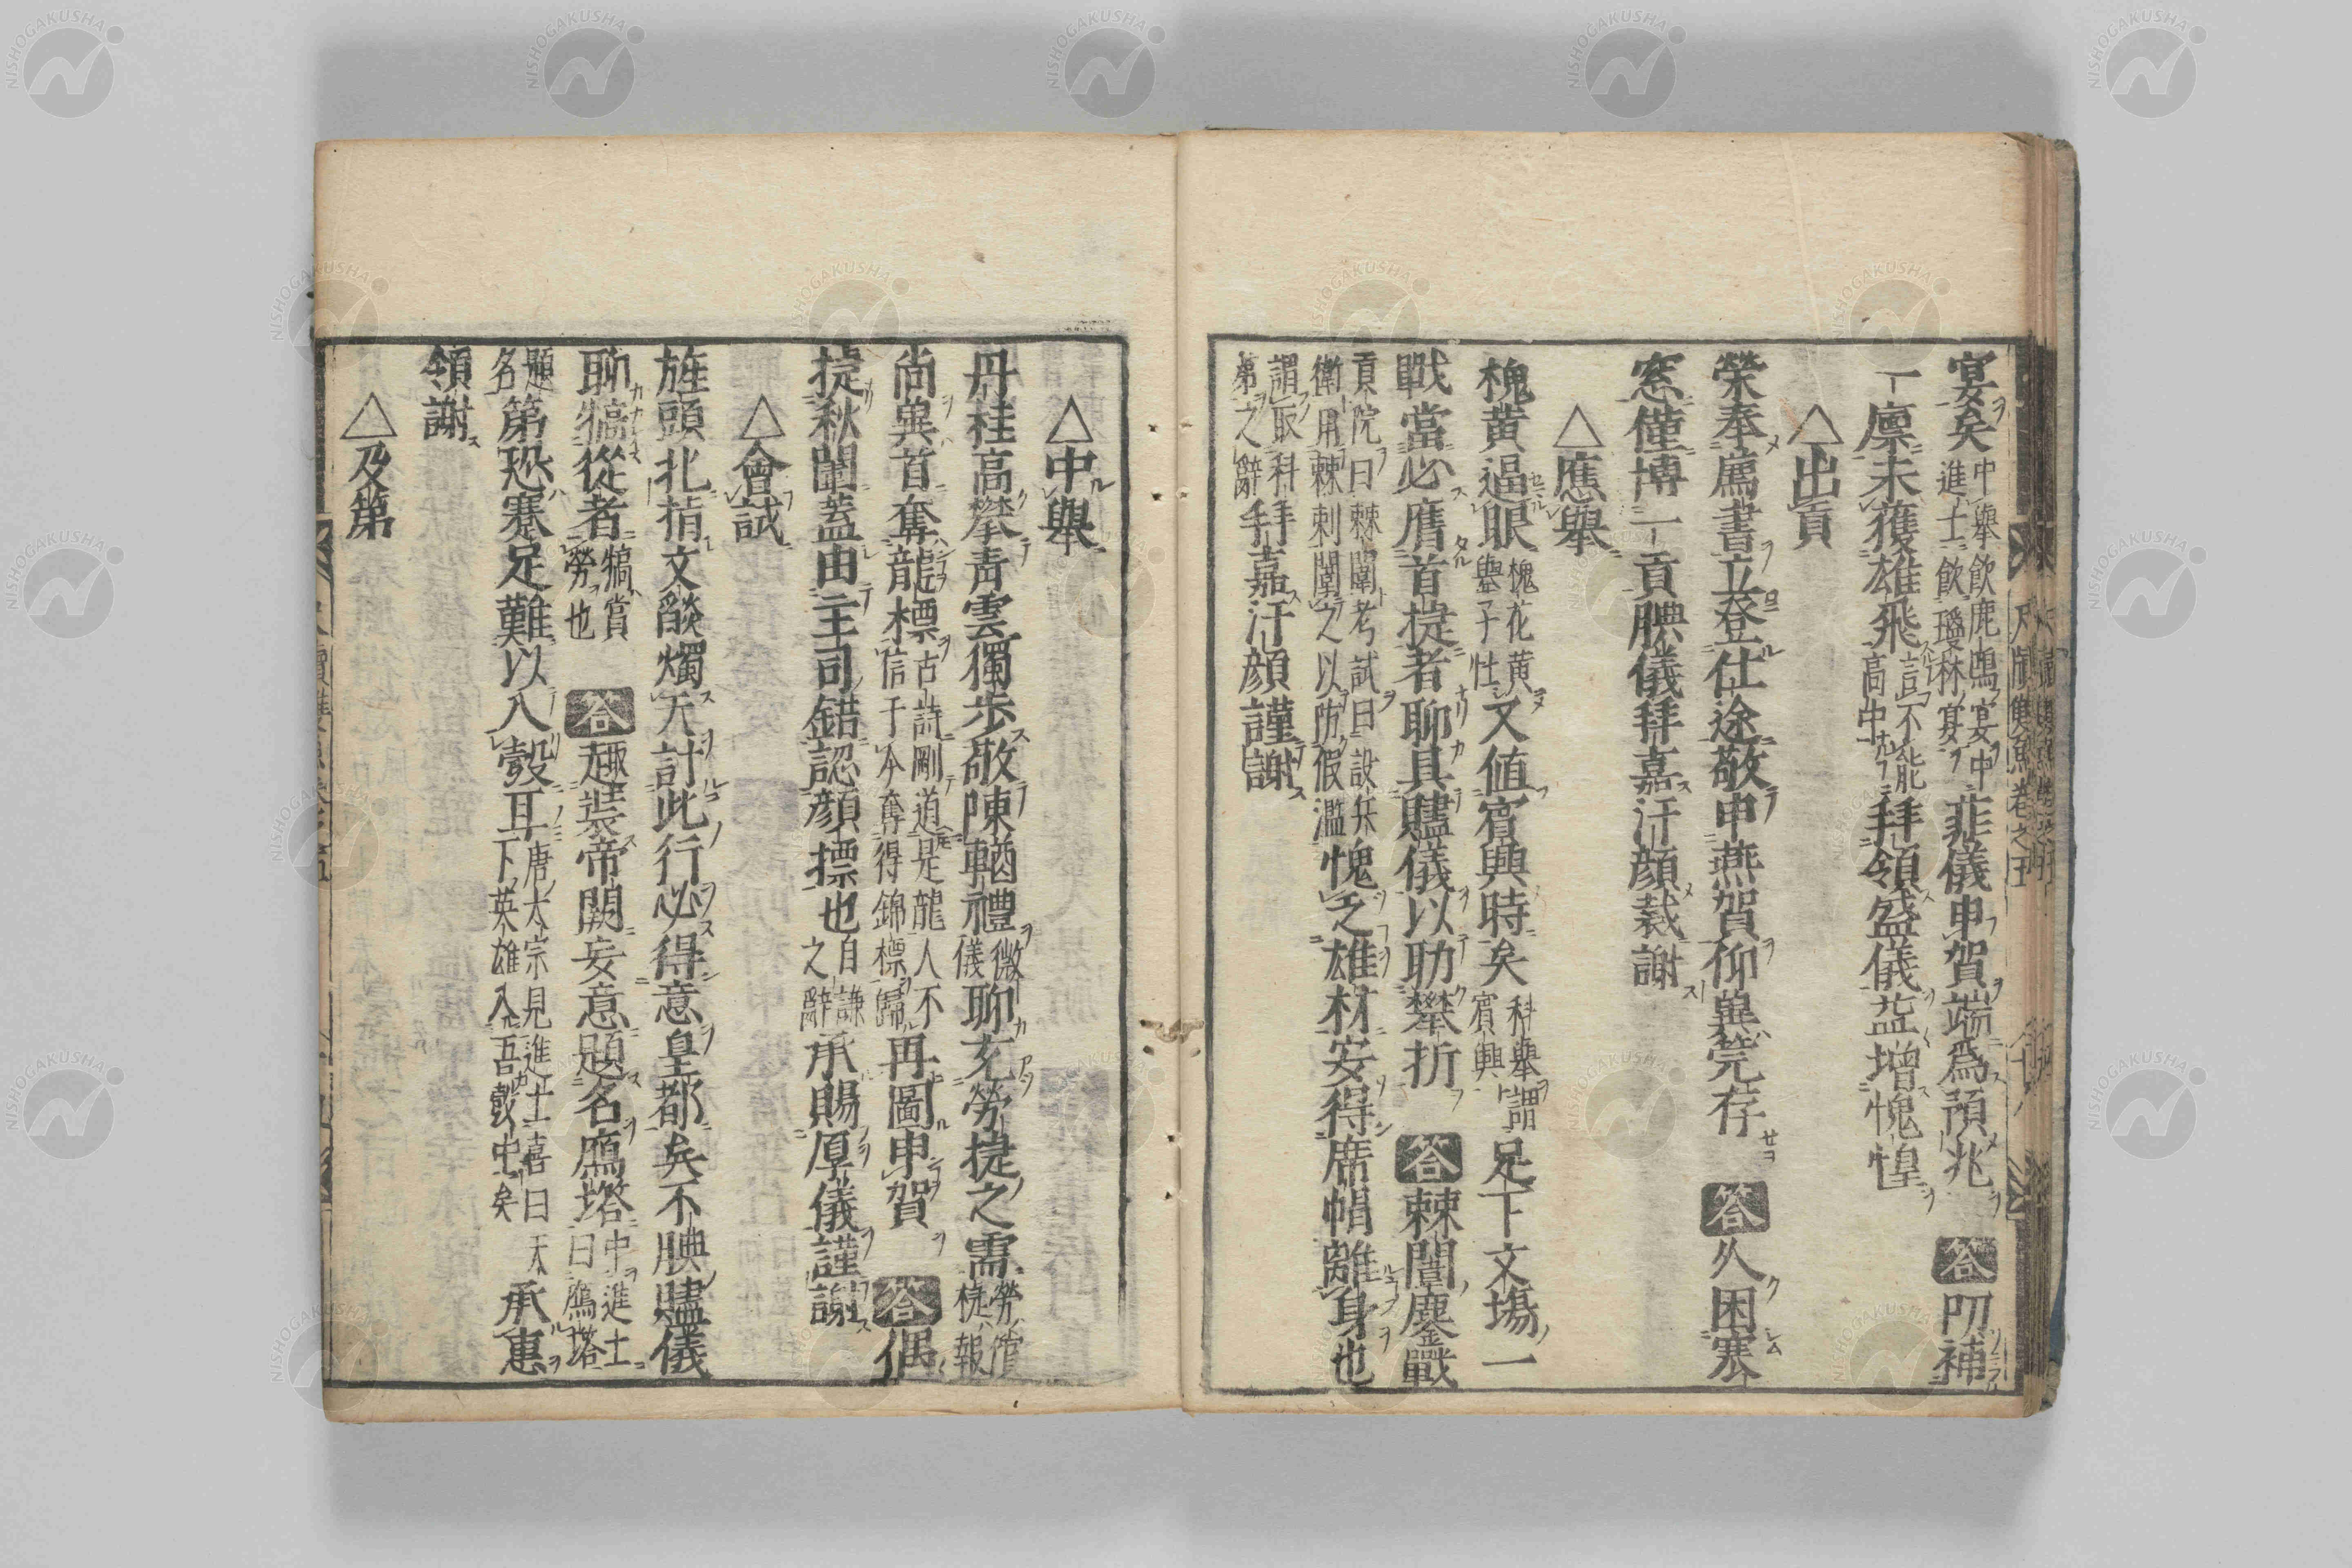 宴矣中舉飲鹿鳴宴中進士飲瓊林宴菲儀申賀端爲預兆 答叨補
一廩未獲雄飛言不能高中拜領盛儀益增愧惶
△出貢
榮奉鷹書立登仕途敬申燕賀仰兾莞存 答久困寒
窓僅博一貢腆儀拜嘉汗顔裁謝
△應舉
槐黄逼眼槐花黄舉子忙又値賓興時矣科舉謂賓興足下文塲一
戰當必膺首捷者聊具贐儀以助攀折 答棘闈鏖戰
貢院曰棘闈考試曰設兵衛用棘刺闈之以防假濫愧乏雄材安得席帽離身也
謂取科第之辭拜嘉汗顔謹謝
△中舉
丹桂高攀青雲獨步敬陳輶禮微儀聊充勞捷之需勞管捷報
尚兾首奪龍標古詩剛道是龍人不信于今奪得錦標歸再圖申賀 答偶
捷秋闈葢由主司錯認顔摽也自謙之辭承賜厚儀謹謝
△會試
旌頭北指文燄燭天計此行必得意皇都矣不腆贐儀
聊犒從者犒賞勞也 答趣裝帝闕妄意題名鴈塔中進士曰鴈塔
題名第恐蹇足難以入彀耳唐太宗見進士喜曰天下英雄入吾彀中矣承惠
領謝
△及第
尺牘雙魚卷之五
NISHOGAKUSHA